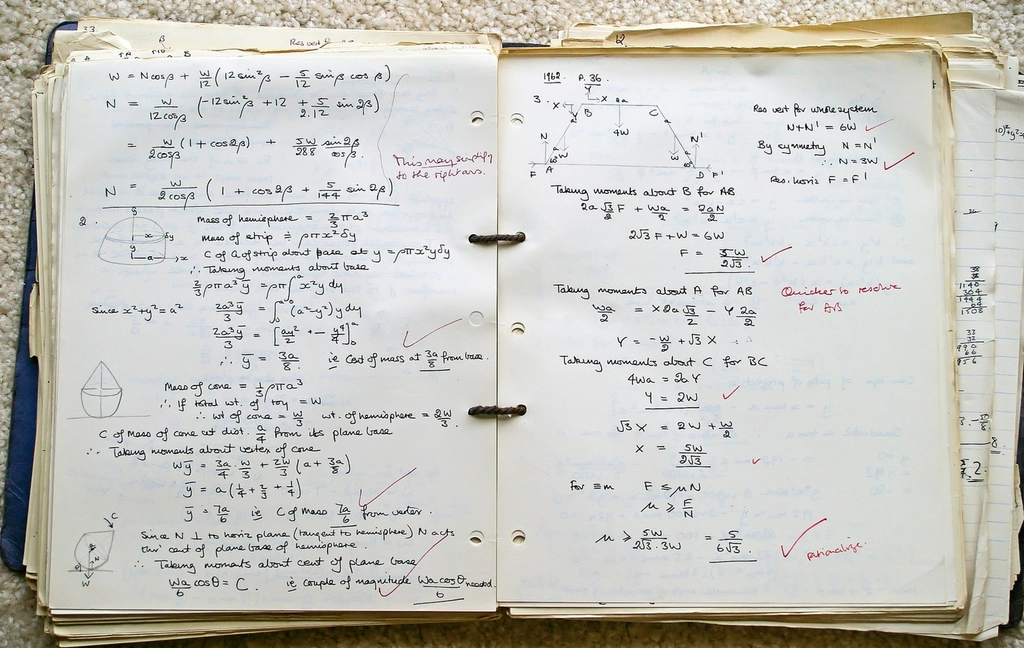 33
W = Ncosβ + W/12 (12 sin²β − 5/12 sinβ cosβ)
N = W/12cosβ (-12sin²β + 12 + 5/2.12 sin 2β)
= W/2cosβ (1 + cos2β) + 5W/288 sin2β/cosβ
This may simplify
to the right ans.
N = W/2cosβ (1 + cos2β + 5/144 sin 2β)
2.
Mass of hemisphere = 2/3 πa³
Mass of strip ≏ ρπx²δy
C of G of strip about base at y = ρπx²yδy
∴ Taking moments about base
2/3 ρπa³ȳ = ρπ∫ₒᵃ x²y dy
since x²+y²=a² 2a³ȳ/3 = ∫ₒᵃ (a²-y²)y dy
2a³ȳ/3 = [ay²/2 + - y⁴/4]ₒᵃ
∴ ȳ = 3a/8 ie Cent of mass at 3a/8 from base.
Mass of cone = 1/3 ρπa³
∴ If total wt. of toy = W
∴ wt of cone = W/3 wt. of hemisphere = 2W/3.
C of Mass of cone at dist. a/4 from its plane base
∴ Taking moments about vertex of cone
Wȳ = 3a/4 . W/3 + 2W/3 (a + 3a/8)
ȳ = a(1/4 + 2/3 + 1/4)
ȳ = 7a/6 ie C of Mass 7a/6 from vertex.
Since N ⊥ to horiz plane (tangent to hemisphere) N acts
thro' cent of plane base of hemisphere.
∴ Taking moments about cent of plane base
Wa/6 cosθ = C ie couple of magnitude Wa cosθ/6 needed.
1962 P. 36.
3.
Res vert for whole system
N+N' = 6W
By symmetry N = N'
∴ N = 3W
Res. horiz F = F'
Taking moments about B for AB
2a √3/2 F + Wa/2 = 2aN/2
2√3 F + W = 6W
F = 5W/2√3
Taking moments about A for AB
Quicker to resolve
for AB
Wa/2 = X 2a √3/2 − Y 2a/2
Y = -W/2 + √3 X
Taking moments about C for BC
4Wa = 2a Y
Y = 2W
√3 X = 2W + W/2
X = 5W/2√3
for ≡m F ≤ μN
μ ≥ F/N
μ ≥ 5W/2√3 . 3W = 5/6√3
rationalize.